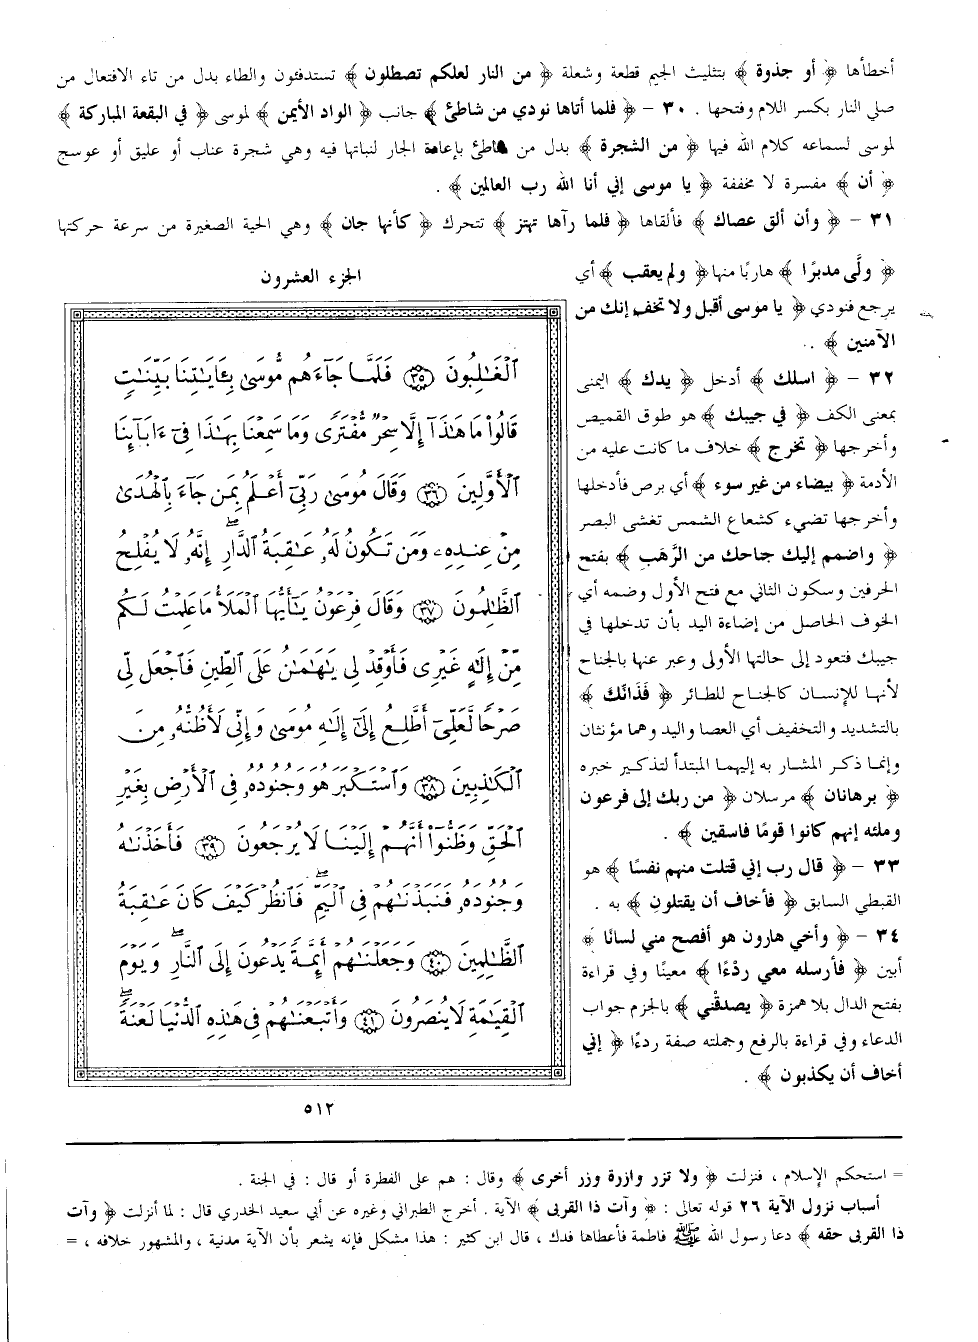 أخطأها ﴿ أو جذوة ﴾ بتثليث الجيم قطعة وشعلة ﴿ من النار لعلكم تصطلون ﴾ تستدفئون والطاء بدل من تاء الافتعال من
صلي النار بكسر اللام وفتحها . ٣٠ – ﴿ فلما أتاها نودي من شاطئ ﴾ جانب ﴿ الواد الأيمن ﴾ لموسى ﴿ في البقعة المباركة ﴾
لموسى لسماعه كلام الله فيها ﴿ من الشجرة ﴾ بدل من شاطئ بإعادة الجار لنباتها فيه وهي شجرة عناب أو عليق أو عوسج
﴿ أن ﴾ مفسرة لا مخففة ﴿ يا موسى إني أنا الله رب العالمين ﴾ .
٣١ – ﴿ وأن ألق عصاك ﴾ فألقاها ﴿ فلما رآها تهتز ﴾ تتحرك ﴿ كأنها جان ﴾ وهي الحية الصغيرة من سرعة حركتها
﴿ ولَّى مدبرًا ﴾ هاربًا منها ﴿ ولم يعقب ﴾ أي
يرجع فنودي ﴿ يا موسى أقبل ولا تخف إنك من
الآمنين ﴾ .
٣٢ – ﴿ اسلك ﴾ أدخل ﴿ يدك ﴾ اليمنى
بمعنى الكف ﴿ في جيبك ﴾ هو طوق القميص
وأخرجها ﴿ تخرج ﴾ خلاف ما كانت عليه من
الأدمة ﴿ بيضاء من غير سوء ﴾ أي برص فأدخلها
وأخرجها تضيء كشعاع الشمس تغشى البصر
﴿ واضمم إليك جناحك من الرَّهَب ﴾ بفتح
الحرفين وسكون الثاني مع فتح الأول وضمه أي
الخوف الحاصل من إضاءة اليد بأن تدخلها في
جيبك فتعود إلى حالتها الأولى وعبر عنها بالجناح
لأنها للإنسان كالجناح للطائر ﴿ فَذَانك ﴾
بالتشديد والتخفيف أي العصا واليد وهما مؤنثان
وإنما ذكر المشار به إليهما المبتدأ لتذكير خبره
﴿ برهانان ﴾ مرسلان ﴿ من ربك إلى فرعون
وملئه إنهم كانوا قومًا فاسقين ﴾ .
٣٣ – ﴿ قال رب إني قتلت منهم نفسًا ﴾ هو
القبطي السابق ﴿ فأخاف أن يقتلون ﴾ به .
٣٤ – ﴿ وأخي هارون هو أفصح مني لسانًا ﴾
أبين ﴿ فأرسله معي ردْءًا ﴾ معينًا وفي قراءة
بفتح الدال بلا همزة ﴿ يصدقْني ﴾ بالجزم جواب
الدعاء وفي قراءة بالرفع وجملته صفة ردءًا ﴿ إني
أخاف أن يكذبون ﴾ .
الجزء العشرون
ٱلْغَـٰلِبُونَ ٣٥ فَلَمَّا جَآءَهُم مُّوسَىٰ بِـَٔايَـٰتِنَا بَيِّنَـٰتٍ
قَالُوا۟ مَا هَـٰذَآ إِلَّا سِحْرٌ مُّفْتَرًى وَمَا سَمِعْنَا بِهَـٰذَا فِىٓ ءَابَآئِنَا
ٱلْأَوَّلِينَ ٣٦ وَقَالَ مُوسَىٰ رَبِّىٓ أَعْلَمُ بِمَن جَآءَ بِٱلْهُدَىٰ
مِنْ عِندِهِۦ وَمَن تَكُونُ لَهُۥ عَـٰقِبَةُ ٱلدَّارِ ۖ إِنَّهُۥ لَا يُفْلِحُ
ٱلظَّـٰلِمُونَ ٣٧ وَقَالَ فِرْعَوْنُ يَـٰٓأَيُّهَا ٱلْمَلَأُ مَا عَلِمْتُ لَكُم
مِّنْ إِلَـٰهٍ غَيْرِى فَأَوْقِدْ لِى يَـٰهَـٰمَـٰنُ عَلَى ٱلطِّينِ فَٱجْعَل لِّى
صَرْحًا لَّعَلِّىٓ أَطَّلِعُ إِلَىٰٓ إِلَـٰهِ مُوسَىٰ وَإِنِّى لَأَظُنُّهُۥ مِنَ
ٱلْكَـٰذِبِينَ ٣٨ وَٱسْتَكْبَرَ هُوَ وَجُنُودُهُۥ فِى ٱلْأَرْضِ بِغَيْرِ
ٱلْحَقِّ وَظَنُّوٓا۟ أَنَّهُمْ إِلَيْنَا لَا يُرْجَعُونَ ٣٩ فَأَخَذْنَـٰهُ
وَجُنُودَهُۥ فَنَبَذْنَـٰهُمْ فِى ٱلْيَمِّ ۖ فَٱنظُرْ كَيْفَ كَانَ عَـٰقِبَةُ
ٱلظَّـٰلِمِينَ ٤٠ وَجَعَلْنَـٰهُمْ أَئِمَّةً يَدْعُونَ إِلَى ٱلنَّارِ ۖ وَيَوْمَ
ٱلْقِيَـٰمَةِ لَا يُنصَرُونَ ٤١ وَأَتْبَعْنَـٰهُمْ فِى هَـٰذِهِ ٱلدُّنْيَا لَعْنَةً ۖ
٥١٢
= استحكم الإسلام ، فنزلت ﴿ ولا تزر وازرة وزر أخرى ﴾ وقال : هم على الفطرة أو قال : في الجنة .
أسباب نزول الآية ٢٦ قوله تعالى : ﴿ وآت ذا القربى ﴾ الآية . أخرج الطبراني وغيره عن أبي سعيد الخدري قال : لما أنزلت ﴿ وآت
ذا القربى حقه ﴾ دعا رسول الله ﷺ فاطمة فأعطاها فدك ، قال ابن كثير : هذا مشكل فإنه يشعر بأن الآية مدنية ، والمشهور خلافه ، =